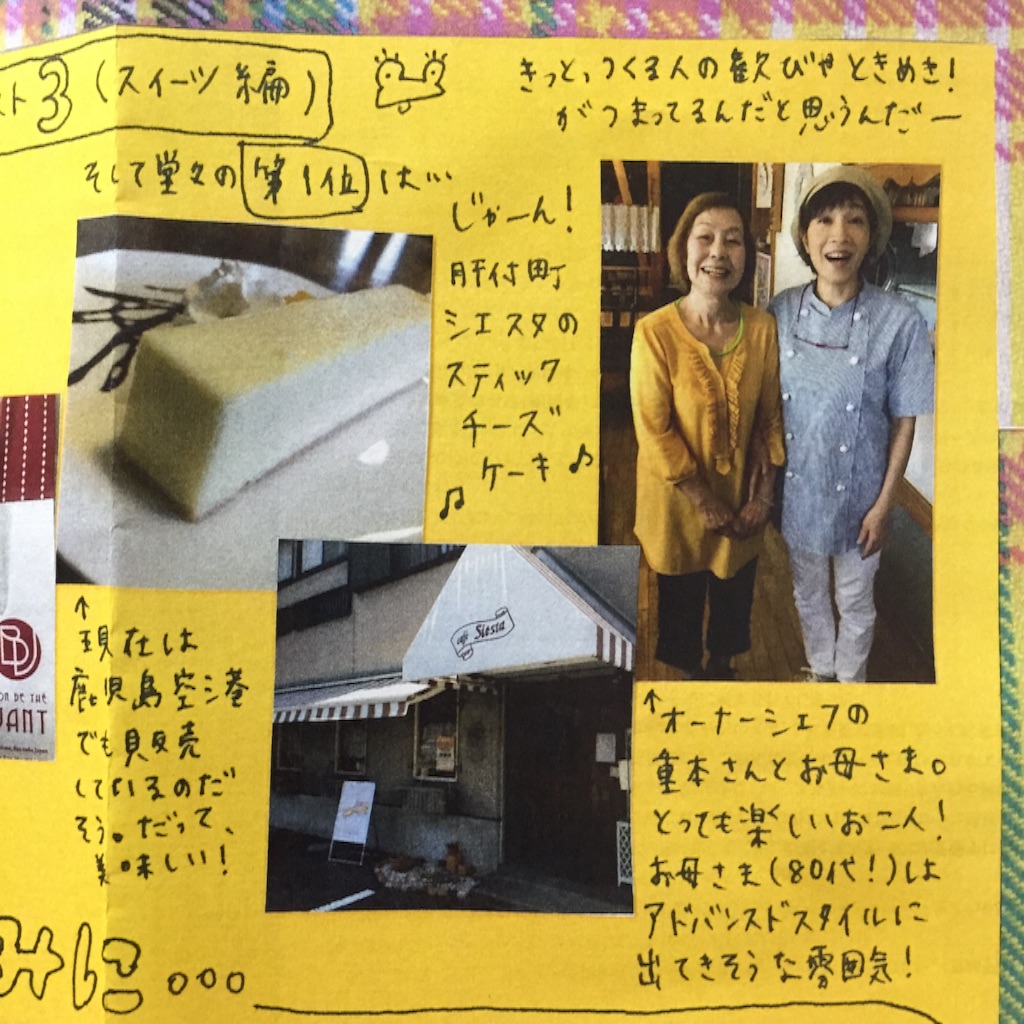 スト3 (スイーツ編)
きっと、つくる人の歓びやときめき!
がつまってるんだと思うんだー
そして堂々の第1位は…
じゃーん!
肝付町
シエスタの
スティック
チーズ
ケーキ♪
♫
cafe Siesta
↑
現在は
鹿児島空港
でも販売
しているのだ
そう。だって、
美味しい!
↑オーナーシェフの
重本さんとお母さま。
とっても楽しいお二人!
お母さま(80代!)は
アドバンスドスタイルに
出てきそうな雰囲気!
ON DE THÉ
VANT
みに...